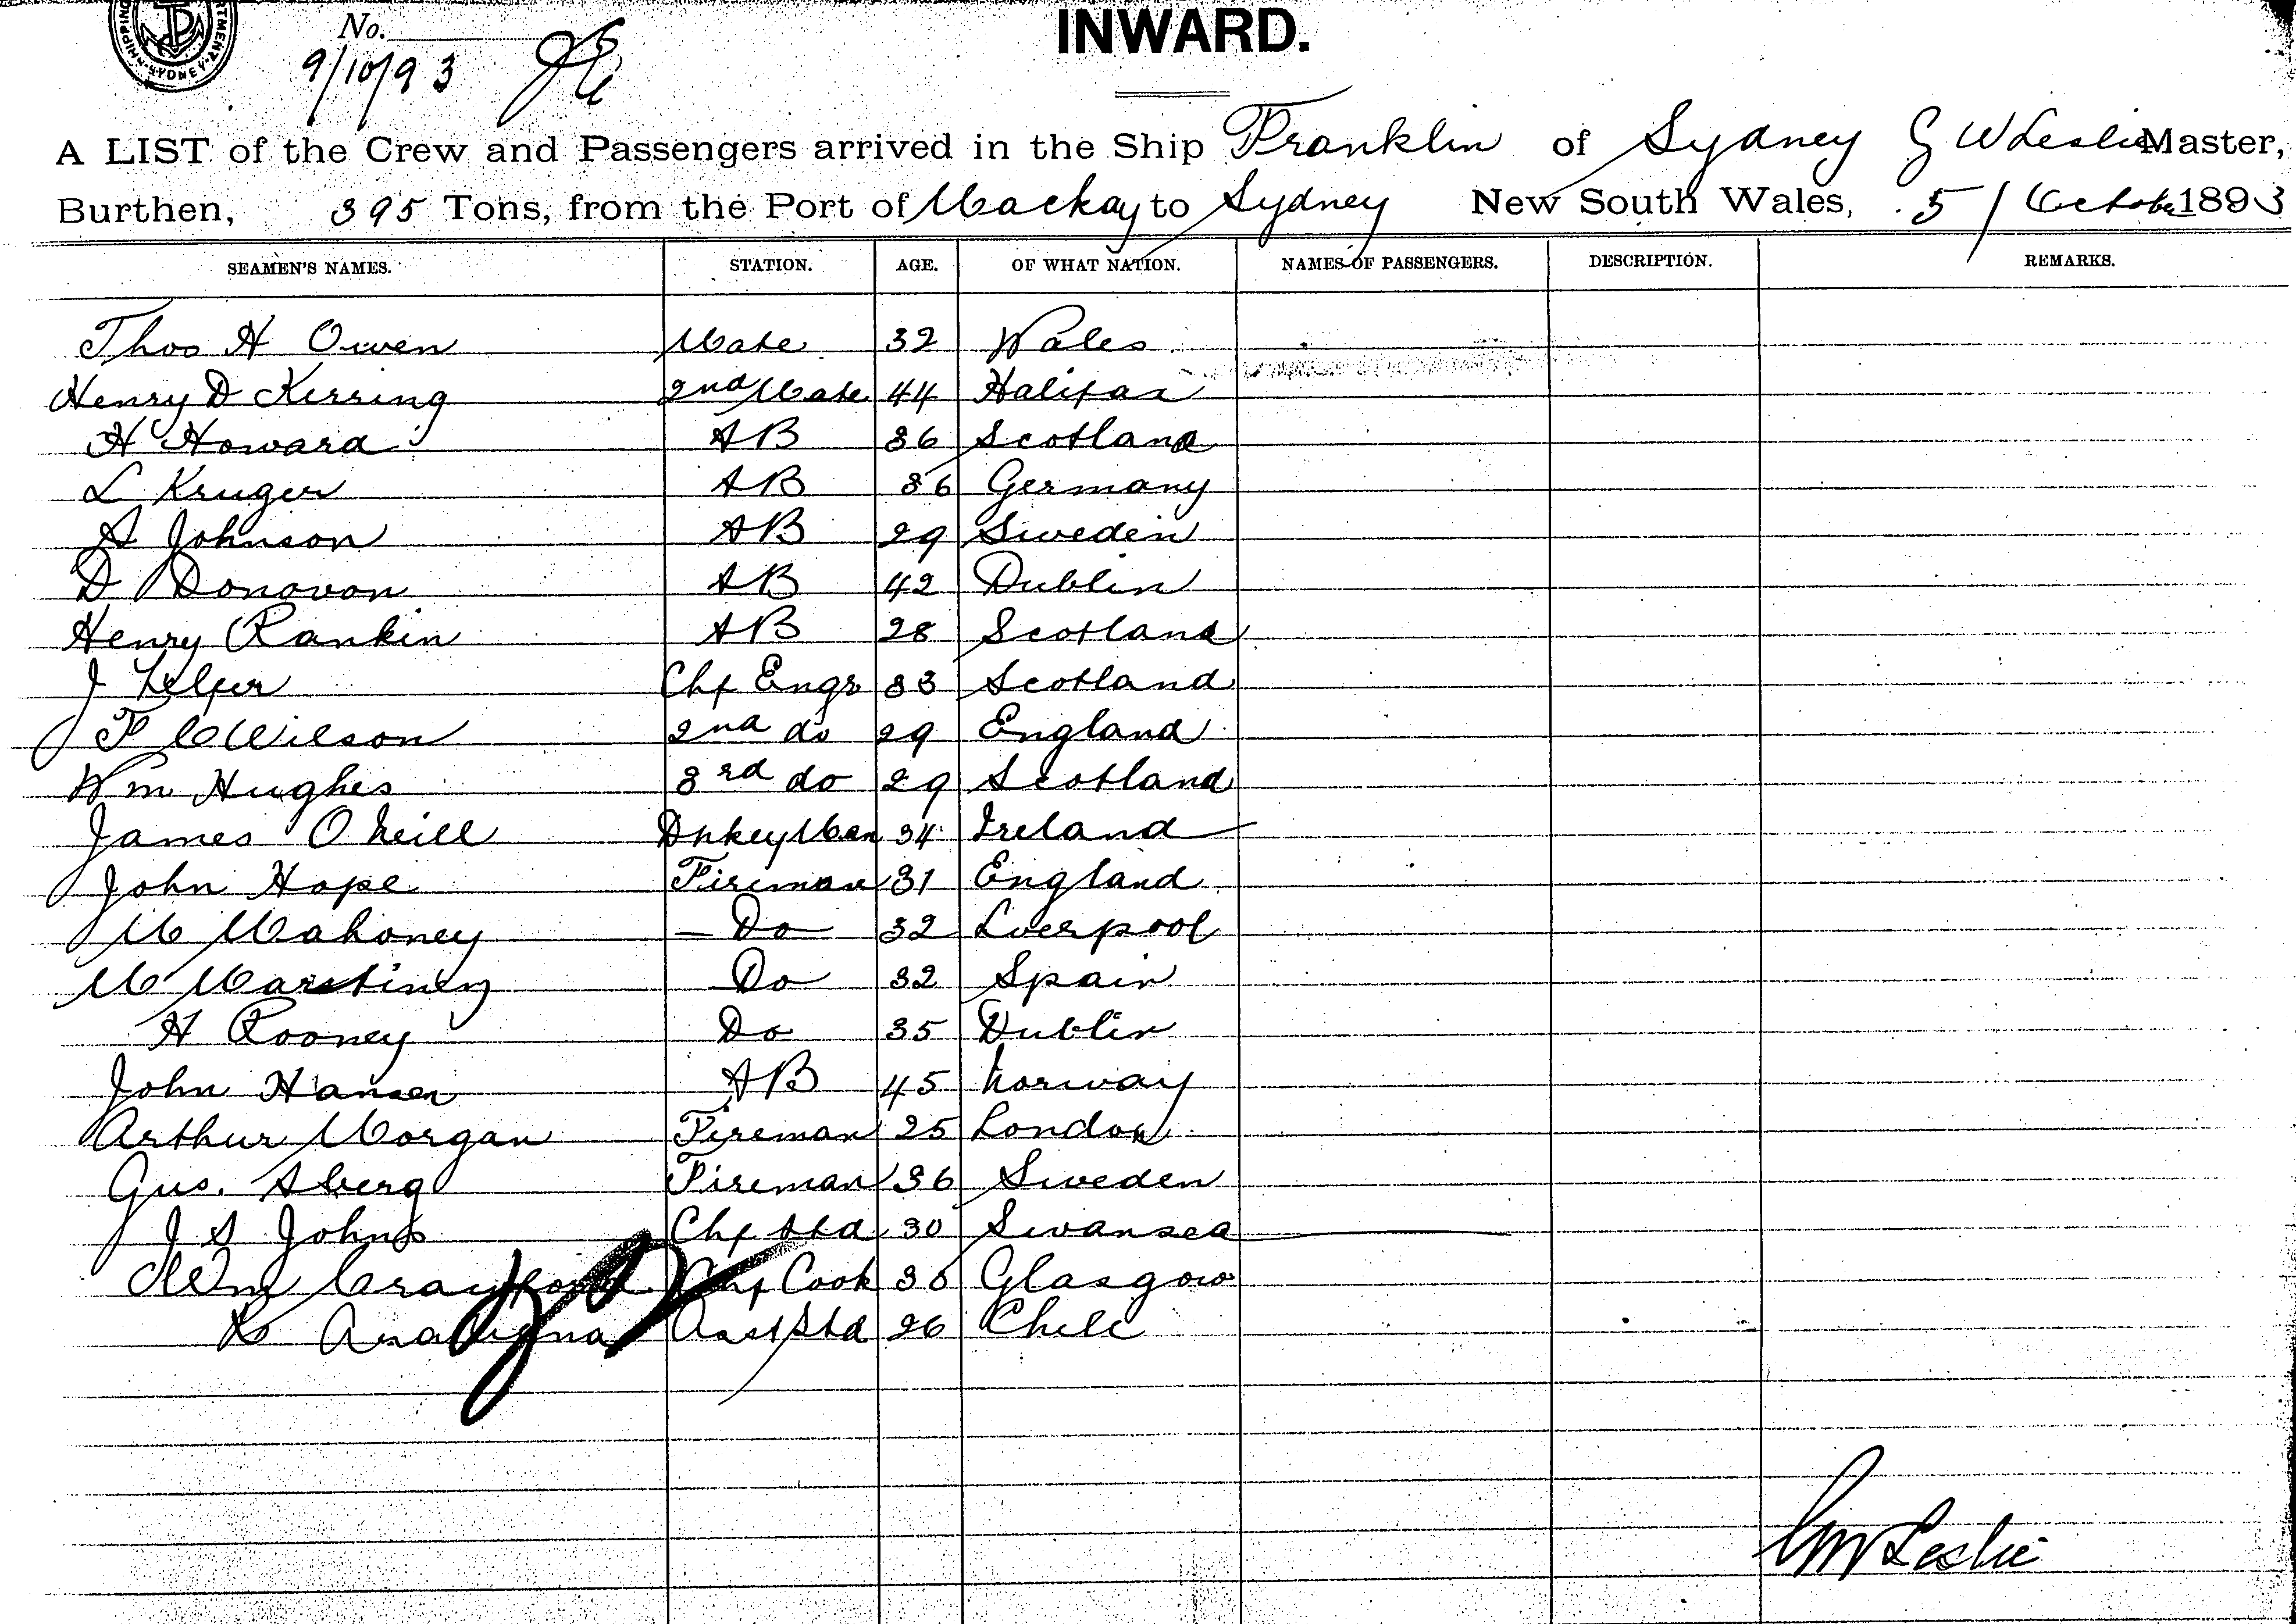 SHIPPING DEPARTMENT SYDNEY
No.
9/10/93
INWARD.
A LIST of the Crew and Passengers arrived in the Ship Franklin of Sydney G W Leslie Master,
Burthen, 395 Tons, from the Port of Mackay to Sydney New South Wales, 5/October 1893
SEAMEN'S NAMES. STATION. AGE. OF WHAT NATION. NAMES OF PASSENGERS. DESCRIPTION. REMARKS.
Thos H Owen Mate 32 Wales
Henry D Kerring 2nd Mate 44 Halifax
H Howard AB 36 Scotland
L Kruger AB 36 Germany
A Johnson AB 29 Sweden
D Donovon AB 42 Dublin
Henry Rankin AB 28 Scotland
J Telfer Chf Engr 33 Scotland
F C Wilson 2nd do 29 England
Wm Hughes 3rd do 29 Scotland
James O Neill Dnkey Man 34 Ireland
John Hope Fireman 31 England
M Mahoney Do 32 Liverpool
M Marstiney Do 32 Spain
H Rooney Do 35 Dublin
John Hansen AB 45 Norway
Arthur Morgan Fireman 25 London
Gus. Aberg Fireman 36 Sweden
J S Johns Chf Std 30 Swansea
Wm Crawford Chf Cook 30 Glasgow
Asst Std 26 Chile
GW Leslie